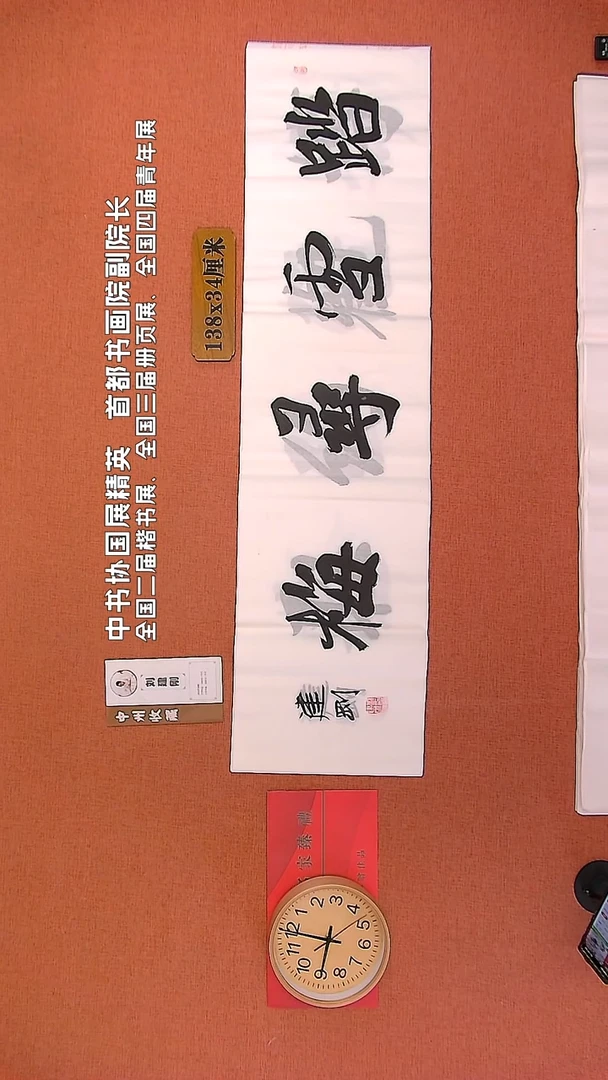 中书协国展精英 首都书画院副院长
全国二届楷书展、全国三届册页展、全国四届青年展
138x34厘米
刘建刚
中州收藏
踏雪尋梅
建剛
家臻
12 1 2 3 4 5 6 7 8 9 10 11